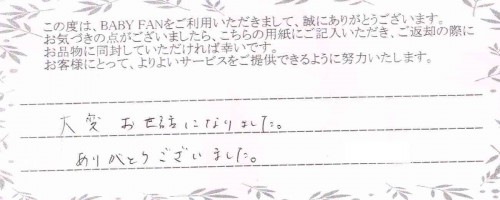 この度は、BABY FANをご利用いただきまして、誠にありがとうございます。
お気づきの点がございましたら、こちらの用紙にご記入いただき、ご返却の際に
お品物に同封していただければ幸いです。
お客様にとって、よりよいサービスをご提供できるように努力いたします。
大変 お世話になりました。
ありがとうございました。